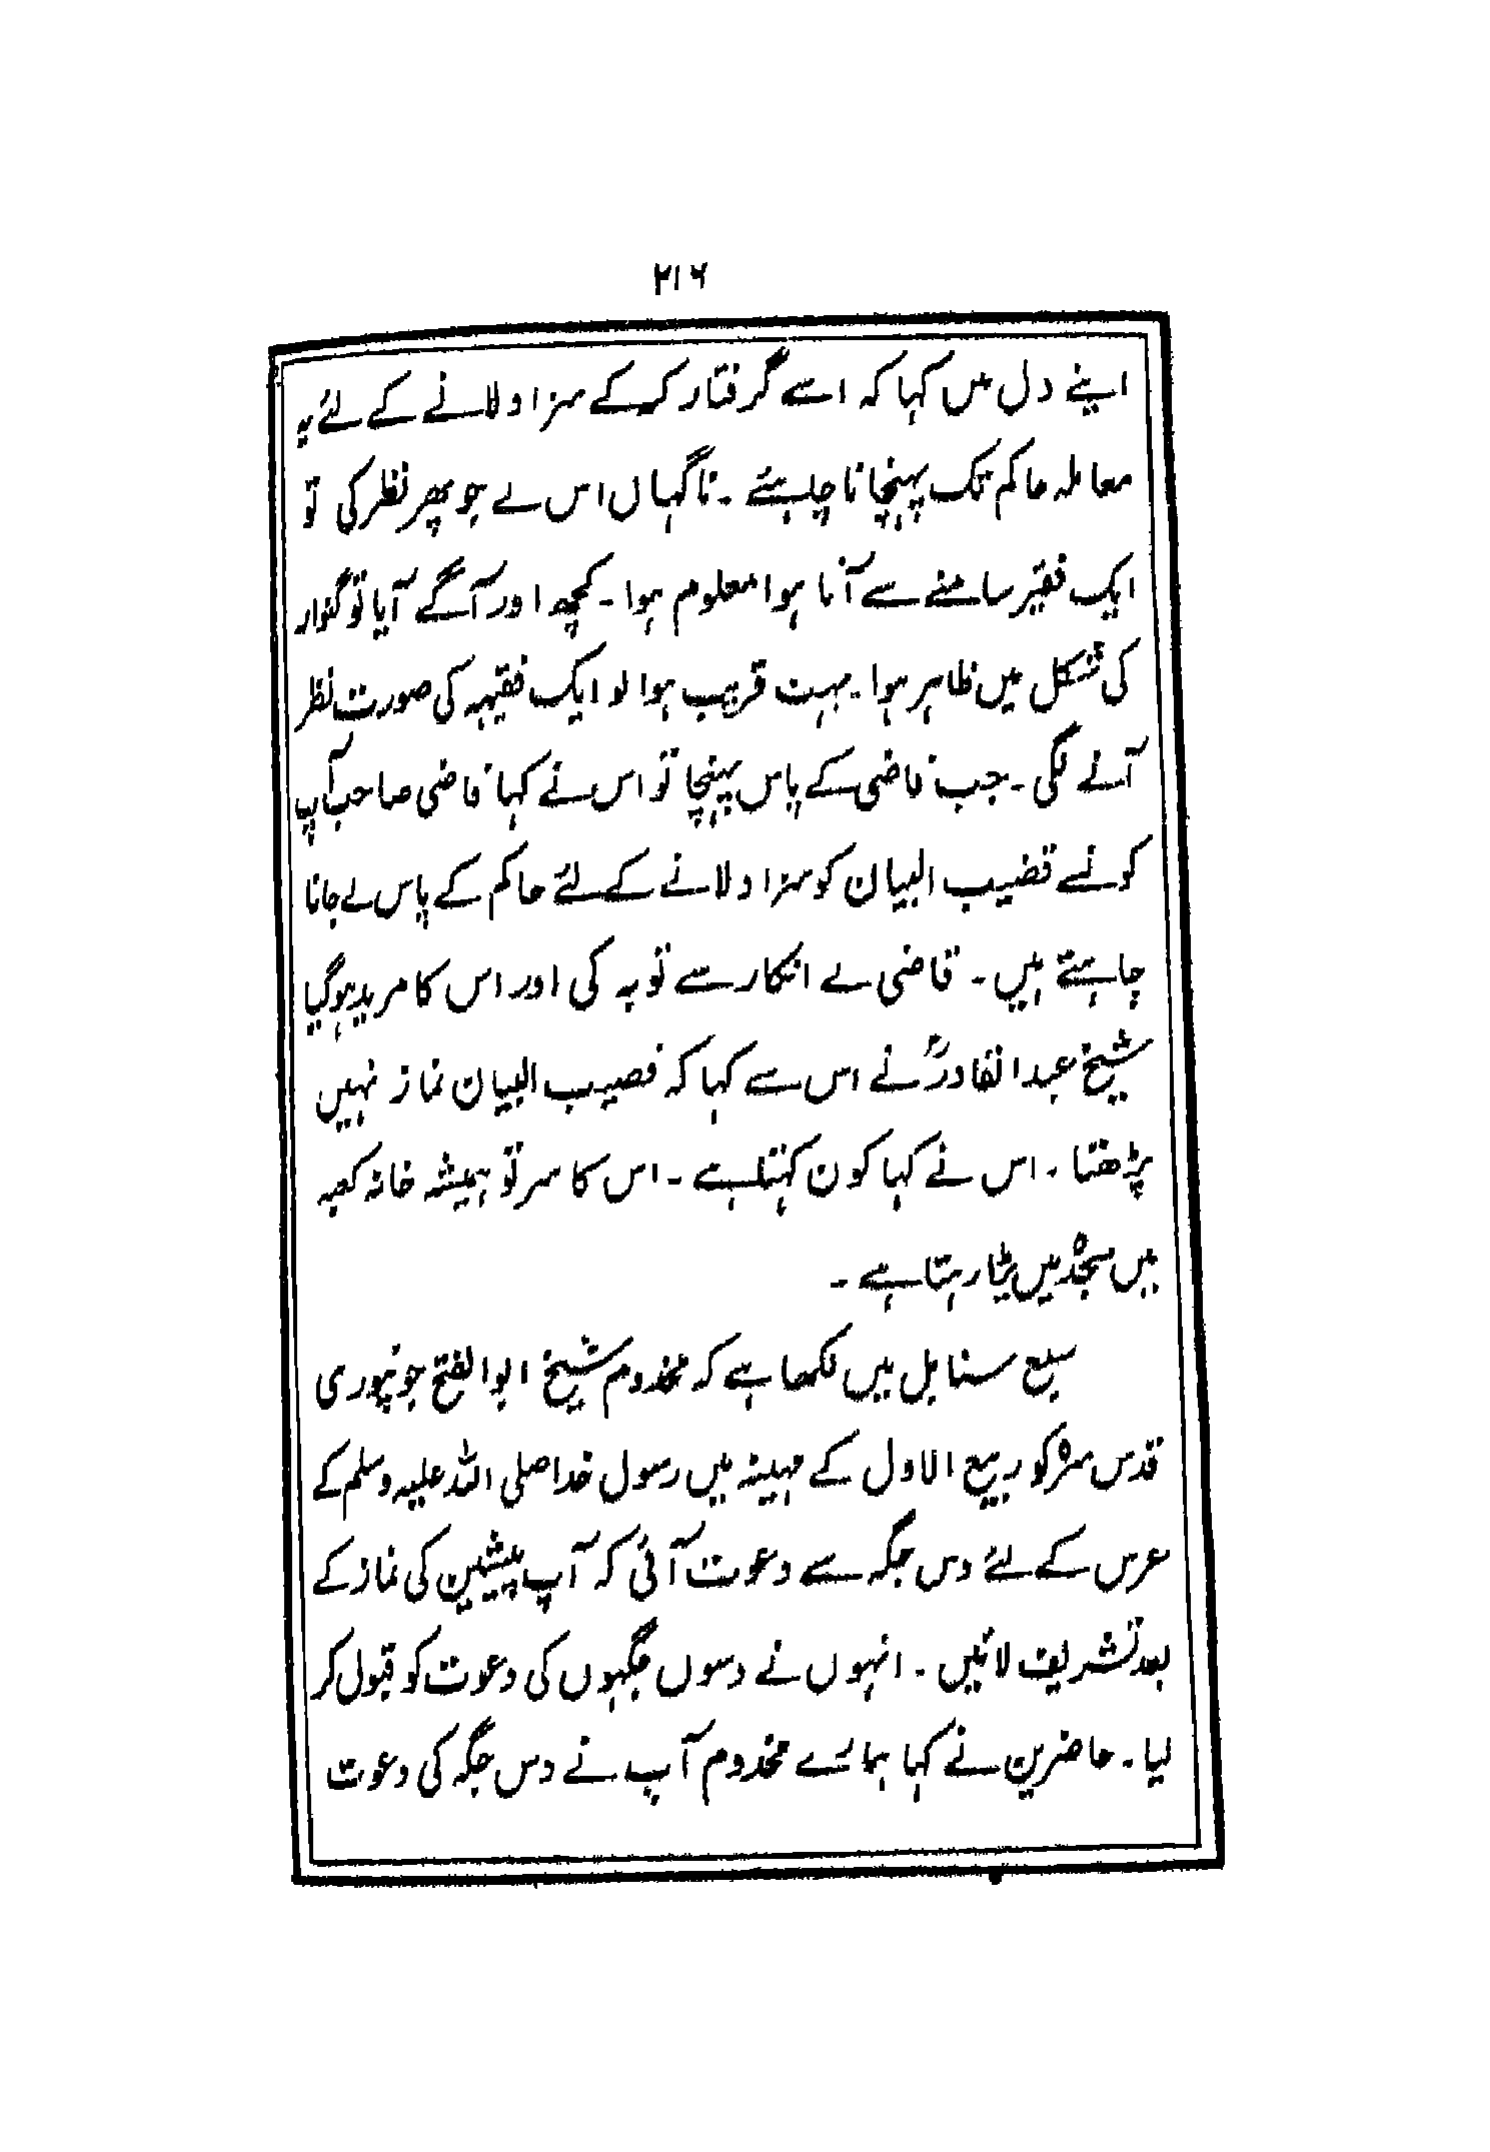 ۲۱۶
اپنے دل میں کہا کہ اسے گرفتار کرکے سزا دلانے کے لئے یہ
معاملہ حاکم تک پہنچانا چاہئے ۔ ناگہاں اس نے جو پھر نظر کی تو
ایک فقیر سامنے سے آتا ہوا معلوم ہوا ۔ کچھ اور آگے آیا تو گنوار
کی شکل میں ظاہر ہوا ۔ بہت قریب ہوا تو ایک فقیہہ کی صورت نظر
آنے لگی ۔ جب قاضی کے پاس پہنچا تو اس نے کہا قاضی صاحب آپ
کونسے قضیب البیان کو سزا دلانے کے لئے حاکم کے پاس لے جانا
چاہتے ہیں ۔ قاضی نے انکار سے توبہ کی اور اس کا مرید ہوگیا
شیخ عبدالقادرؒ نے اس سے کہا کہ قضیب البیان نماز نہیں
پڑھتا ۔ اس نے کہا کون کہتا ہے ۔ اس کا سر تو ہمیشہ خانہ کعبہ
میں سجدہ میں پڑا رہتا ہے ۔
سبع سنابل میں لکھا ہے کہ مخدوم شیخ ابوالفتح جونپوری
قدس سرہ کو ربیع الاول کے مہینہ میں رسول خدا صلی اللہ علیہ وسلم کے
عرس کے لئے دس جگہ سے دعوت آئی کہ آپ پیشین کی نماز کے
بعد تشریف لائیں ۔ انہوں نے دسوں جگہوں کی دعوت کو قبول کر
لیا ۔ حاضرین نے کہا ہمارے مخدوم آپ نے دس جگہ کی دعوت